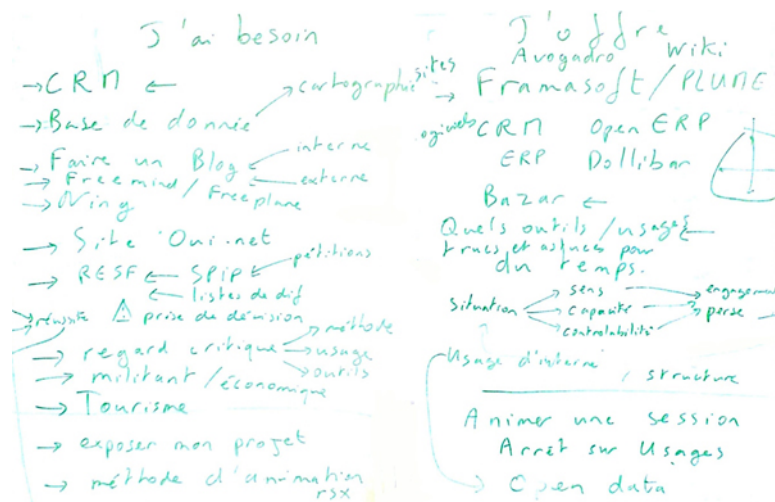 J'ai besoin
→ CRM ←
→ Base de donnée → cartographie
→ Faire un Blog ← interne
→ Freemind / Freeplane ← externe
→ Ning
→ Site Oui.net
→ RESF ← SPIP ← pétitions
← listes de dif
→ réussite ⚠ prise de décision
→ regard critique → méthode
→ usage
→ outils
→ militant / économique
→ Tourisme
→ exposer mon projet
→ méthode d'animation
rsx
J'offre
Avogadro Wiki
sites → Framasoft / PLUME
ogiciels CRM Open ERP
ERP Dollibar
Bazar ←
Quels outils / usages ←
trucs et astuces pour
du temps.
situation → sens → engagement
→ capacité → perse
→ controlabilité
Usage d'interne
, structure
Animer une session
Arrêt sur Usages
→ Open data